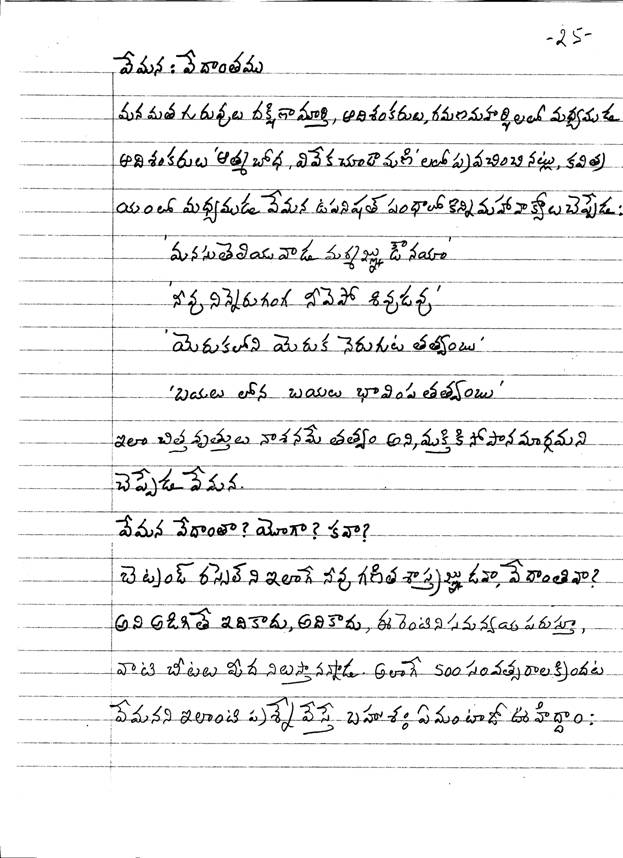 -25-
వేమన : వేదాంతము
మన మత గురువుల దక్షిణామూర్తి, ఆదిశంకరులు, రమణమహర్షిలలో మధ్యముడు
ఆదిశంకరులు 'ఆత్మబోధ, వివేక చూడామణి' లలో ప్రవచించినట్లు, కవిత్ర
యంలో మధ్యముడు వేమన ఉపనిషత్ పంథాలో కొన్ని మహావాక్యాలు చెప్పేడు :
'మనసు తెలియవాడు మర్మజ్ఞు డౌనయా'
'నీవు నిన్నెరుగంగ నీవెపో శివుడవు'
'యెరుకలోని యెరుక నెరుగుట తత్వంబు'
'బయలు లోన బయలు భావింప తత్వంబు'
ఇలా చిత్తవృత్తులు నాశనమే తత్వం అని, ముక్తికి సోపానమార్గమని
చెప్పేడు వేమన.
వేమన వేదాంతా? యోగా? కవా?
బెట్రండ్ రస్సెల్ ని ఇలాగే నీవు గణిత శాస్త్రజ్ఞుడవా, వేదాంతివా?
అని అడిగితే ఇదికాదు, అదికాదు, ఈ రెంటిని సమన్వయ పరుస్తూ,
వాటి చోటుల మీద నిలుస్తానన్నాడు. అలాగే 500 సంవత్సరాల క్రిందట
వేమనని ఇలాంటి ప్రశ్నే వేస్తే బహుశః ఏమంటాడో ఊహిద్దాం :